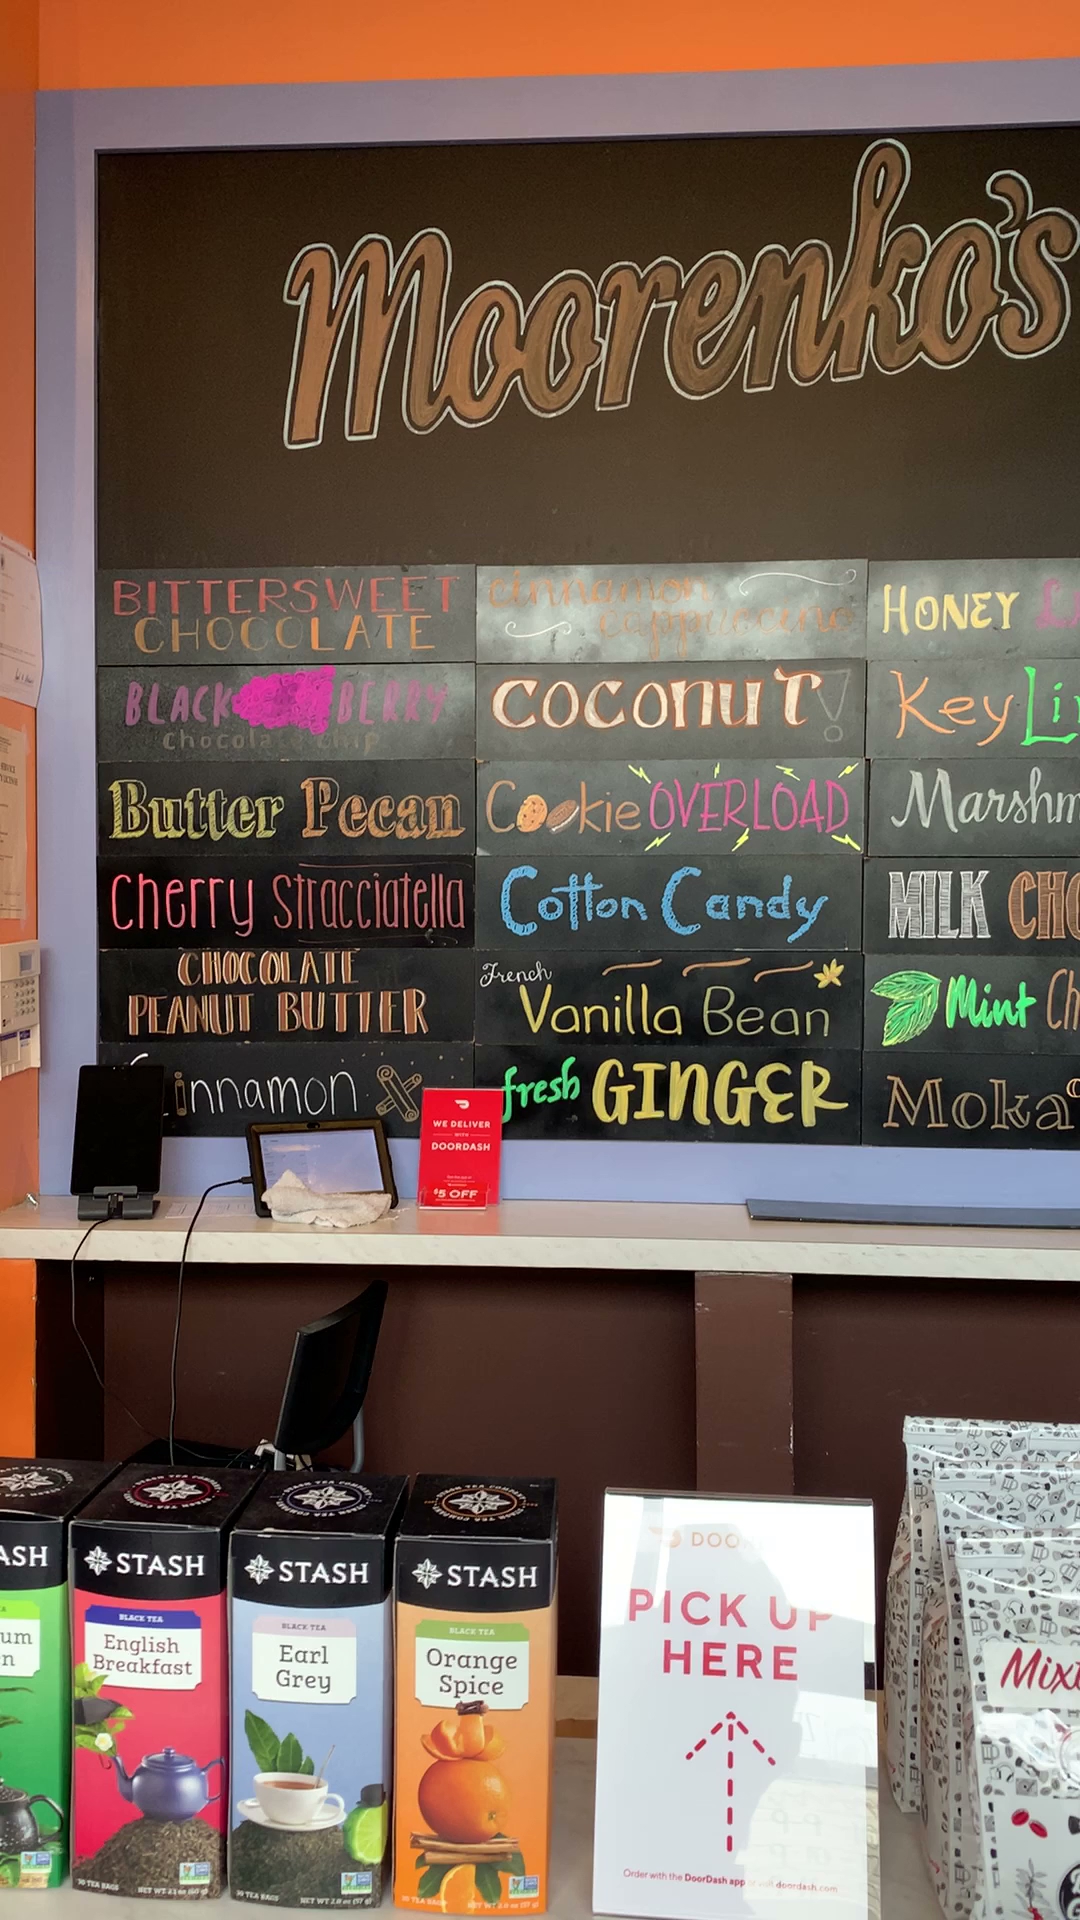 Moorenko's
BITTERSWEET
CHOCOLATE
BLACK BERRY
chocolate chip
Butter Pecan
Cherry Stracciatella
CHOCOLATE
PEANUT BUTTER
innamon
cinnamon
cappuccino
coconut!
Cookie OVERLOAD
Cotton Candy
French
Vanilla Bean
fresh GINGER
HONEY
Key
Marshm
MILK CHO
Mint Ch
Moka
WE DELIVER
WITH
DOORDASH
$5 OFF
STASH
BLACK TEA
English
Breakfast
30 TEA BAGS
STASH
BLACK TEA
Earl
Grey
30 TEA BAGS NET WT 2.0 oz (57 g)
STASH
BLACK TEA
Orange
Spice
NET WT 2.0 oz (57 g)
ASH
um
n
DOOR
PICK UP
HERE
Order with the DoorDash app doordash.com
Mixt